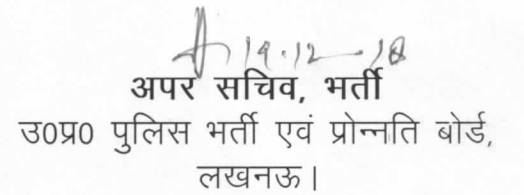 19.12-18
अपर सचिव, भर्ती
उ0प्र0 पुलिस भर्ती एवं प्रोन्नति बोर्ड,
लखनऊ।